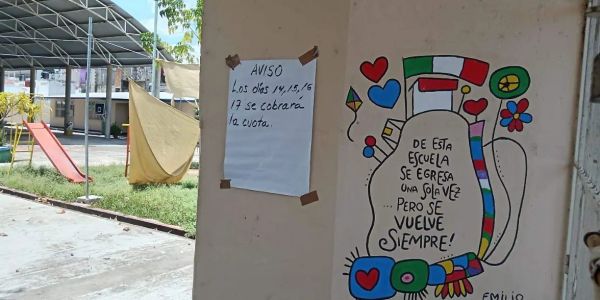 AVISO
Los días 14, 15, 16
17 se cobrará
la cuota.
DE ESTA
ESCUELA
SE EGRESA
UNA SOLA VEZ
...PERO SE
VUELVE
SIEMPRE!
EMILIO